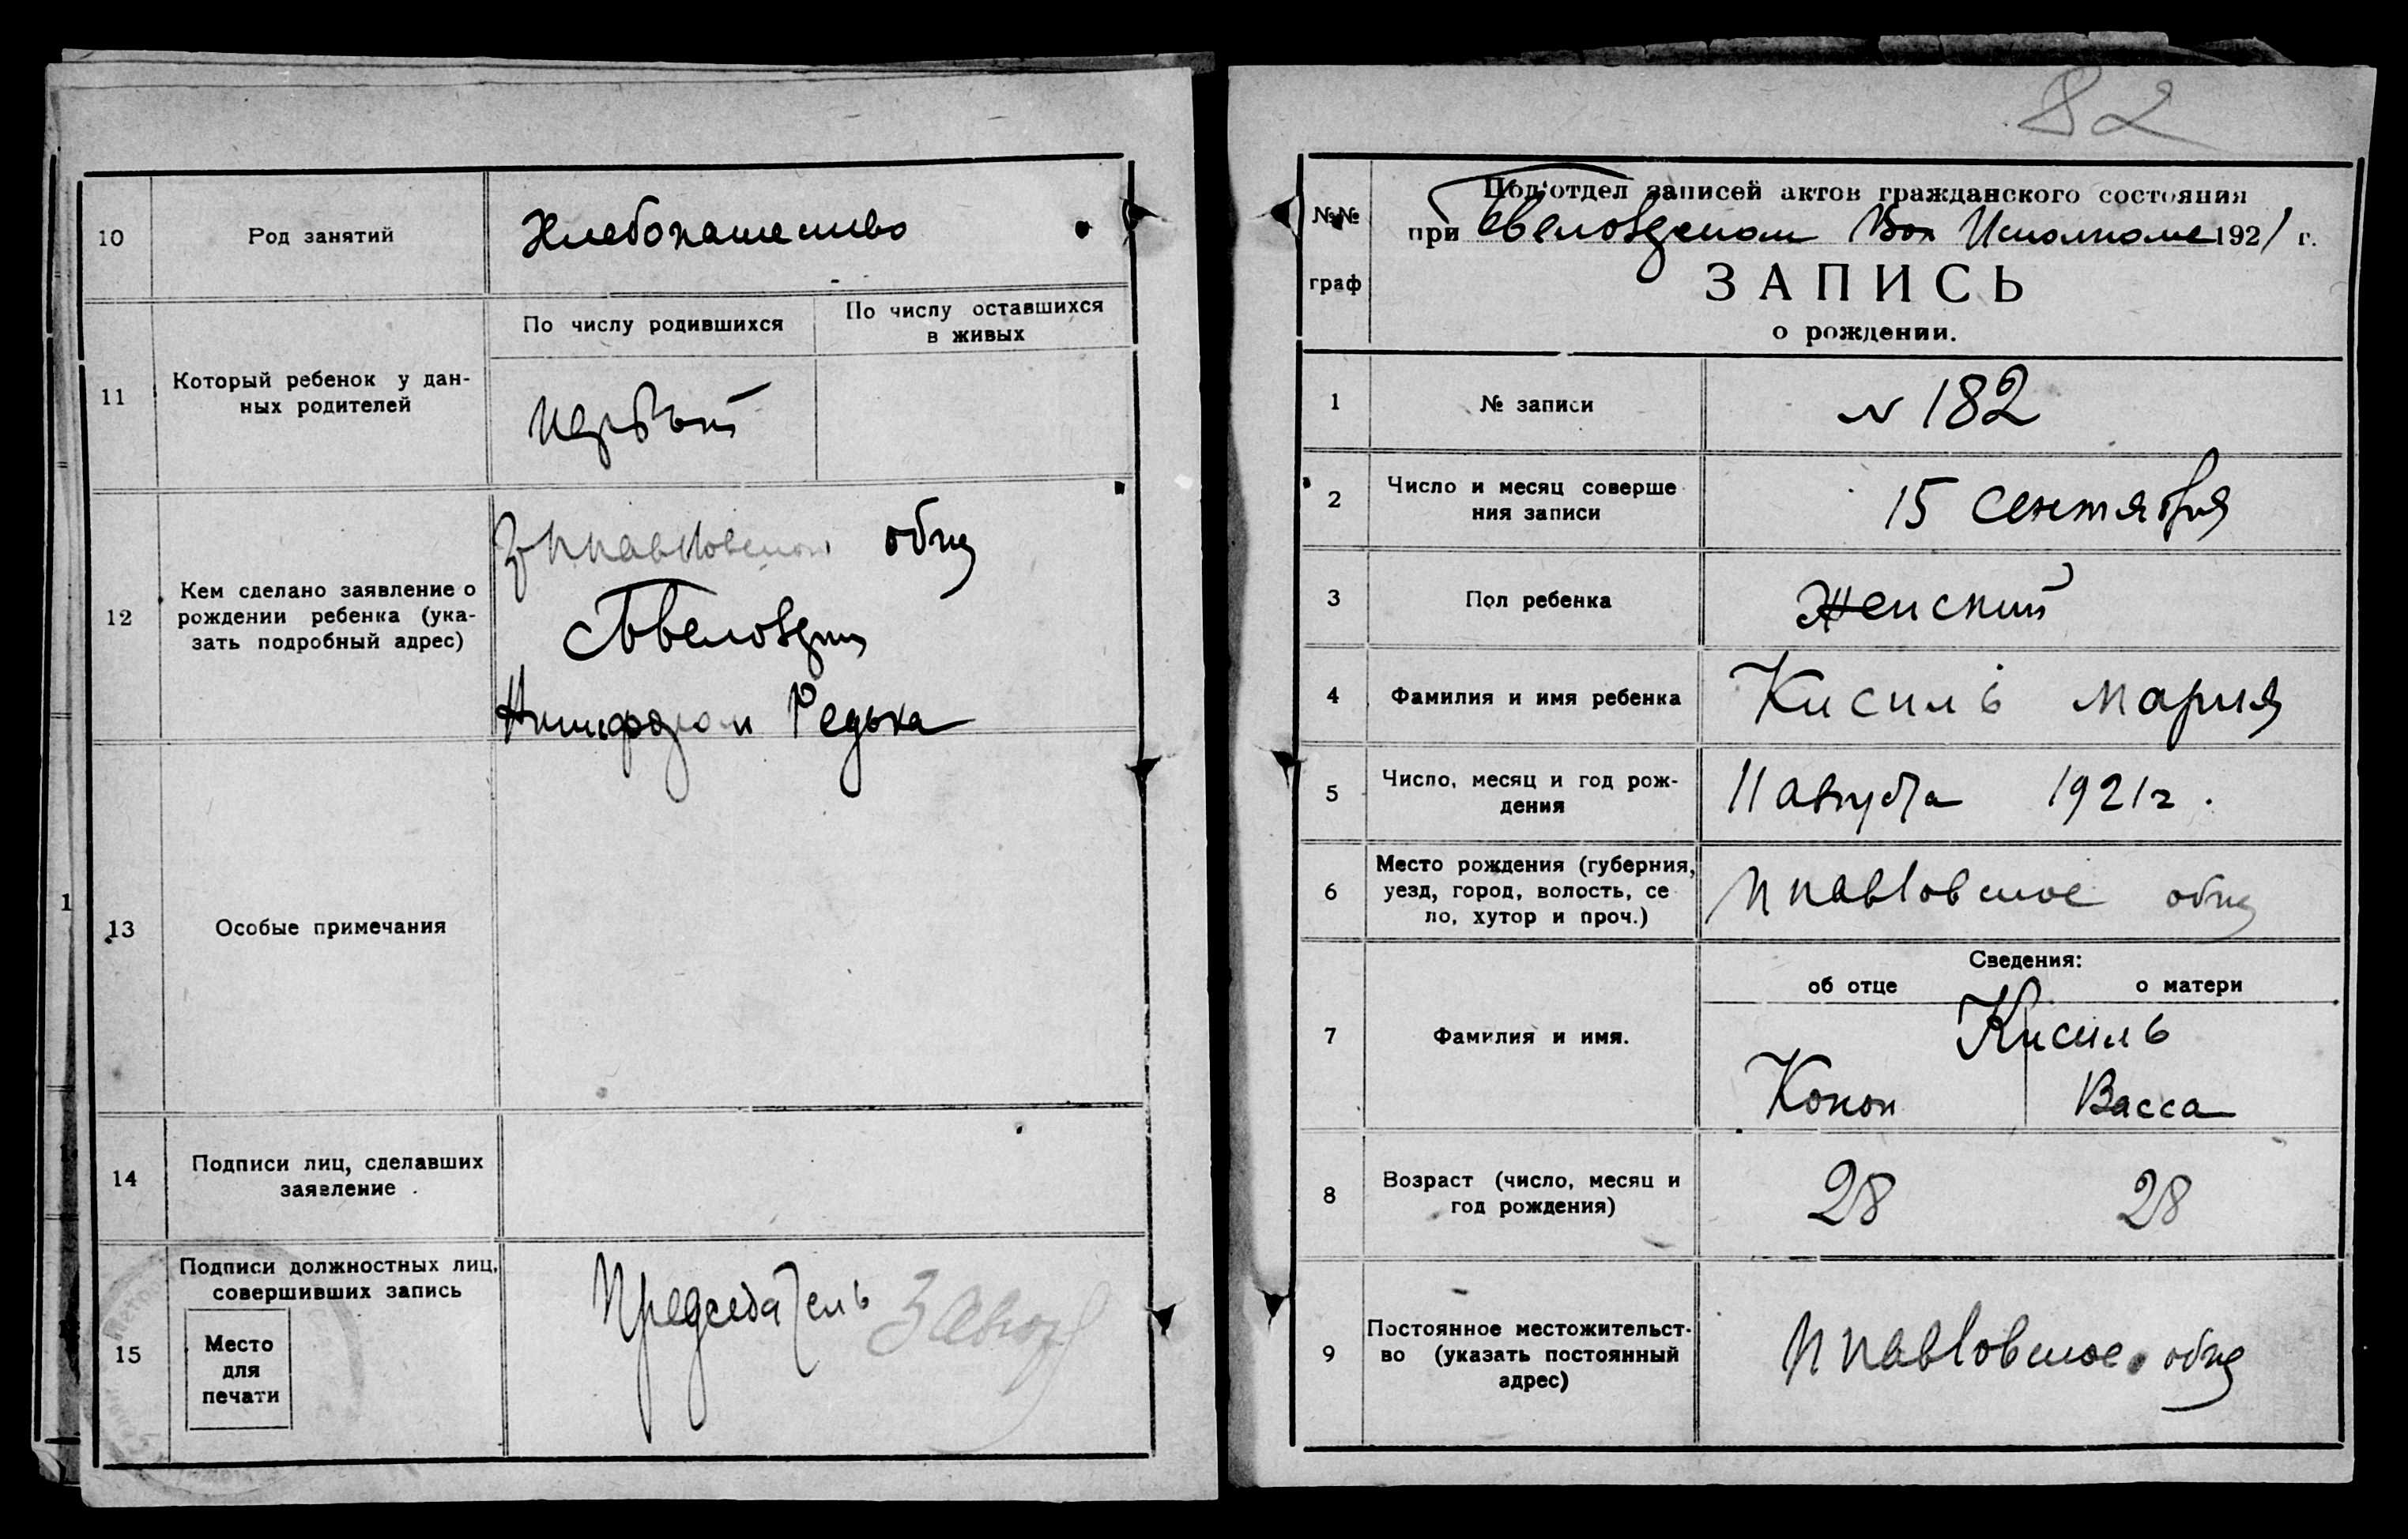 10
Род занятий
Хлебопашество
11
Который ребенок у дан-
ных родителей
По числу родившихся
По числу оставшихся
в живых
первый
12
Кем сделано заявление о
рождении ребенка (ука-
зать подробный адрес)
общ
Редька
13
Особые примечания
14
Подписи лиц, сделавших
заявление
15
Подписи должностных лиц,
совершивших запись
Место
для
печати
Председатель
1
82
№№
граф
Под'отдел записей актов гражданского состояния
при Вол Исполкоме 1921 г.
ЗАПИСЬ
о рождении.
1
№ записи
N 182
2
Число и месяц соверше
ния записи
15 сентября
3
Пол ребенка
Женский
4
Фамилия и имя ребенка
Кисиль Мария
5
Число, месяц и год рож-
дения
11 августа 1921 г.
6
Место рождения (губерния,
уезд, город, волость, се
ло, хутор и проч.)
П павловское общ
7
Фамилия и имя.
Сведения:
об отце
о матери
Кисиль
Конон
Васса
8
Возраст (число, месяц и
год рождения)
28
28
9
Постоянное местожительст-
во (указать постоянный
адрес)
П павловское общ